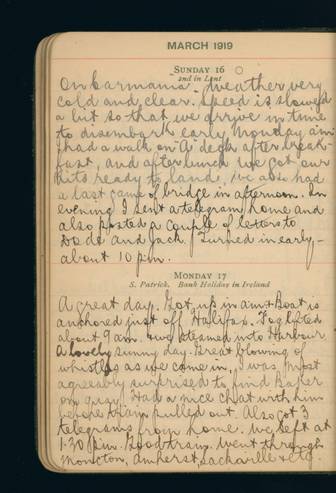 MARCH 1919
SUNDAY 16
2nd in Lent
On Carmania. Weather very
cold and clear. Speed is slowed
a bit so that we arrive in time
to disembark early Monday a.m.
I had a walk on "A" deck after break-
fast, and after lunch we got our
kits ready to land. We also had
a last game of bridge in afternoon. In
evening I sent a telegram home and
also posted a couple of letters to
and Jack. Turned in early -
about 10 p.m.
MONDAY 17
S. Patrick. Bank Holiday in Ireland
A great day. Got up in a.m. & boat is
anchored just off Halifax. Fog lifted
about 9 a.m. and steamed into Harbour
A lovely sunny day. Great blowing of
whistles as we came in. I was most
agreeably surprised to find
on quay. Had a nice chat with him
before train pulled out. Also got 3
telegrams from home. We left at
1.30 p.m. Good train. Went through
Moncton, Amherst, Sackville etc.